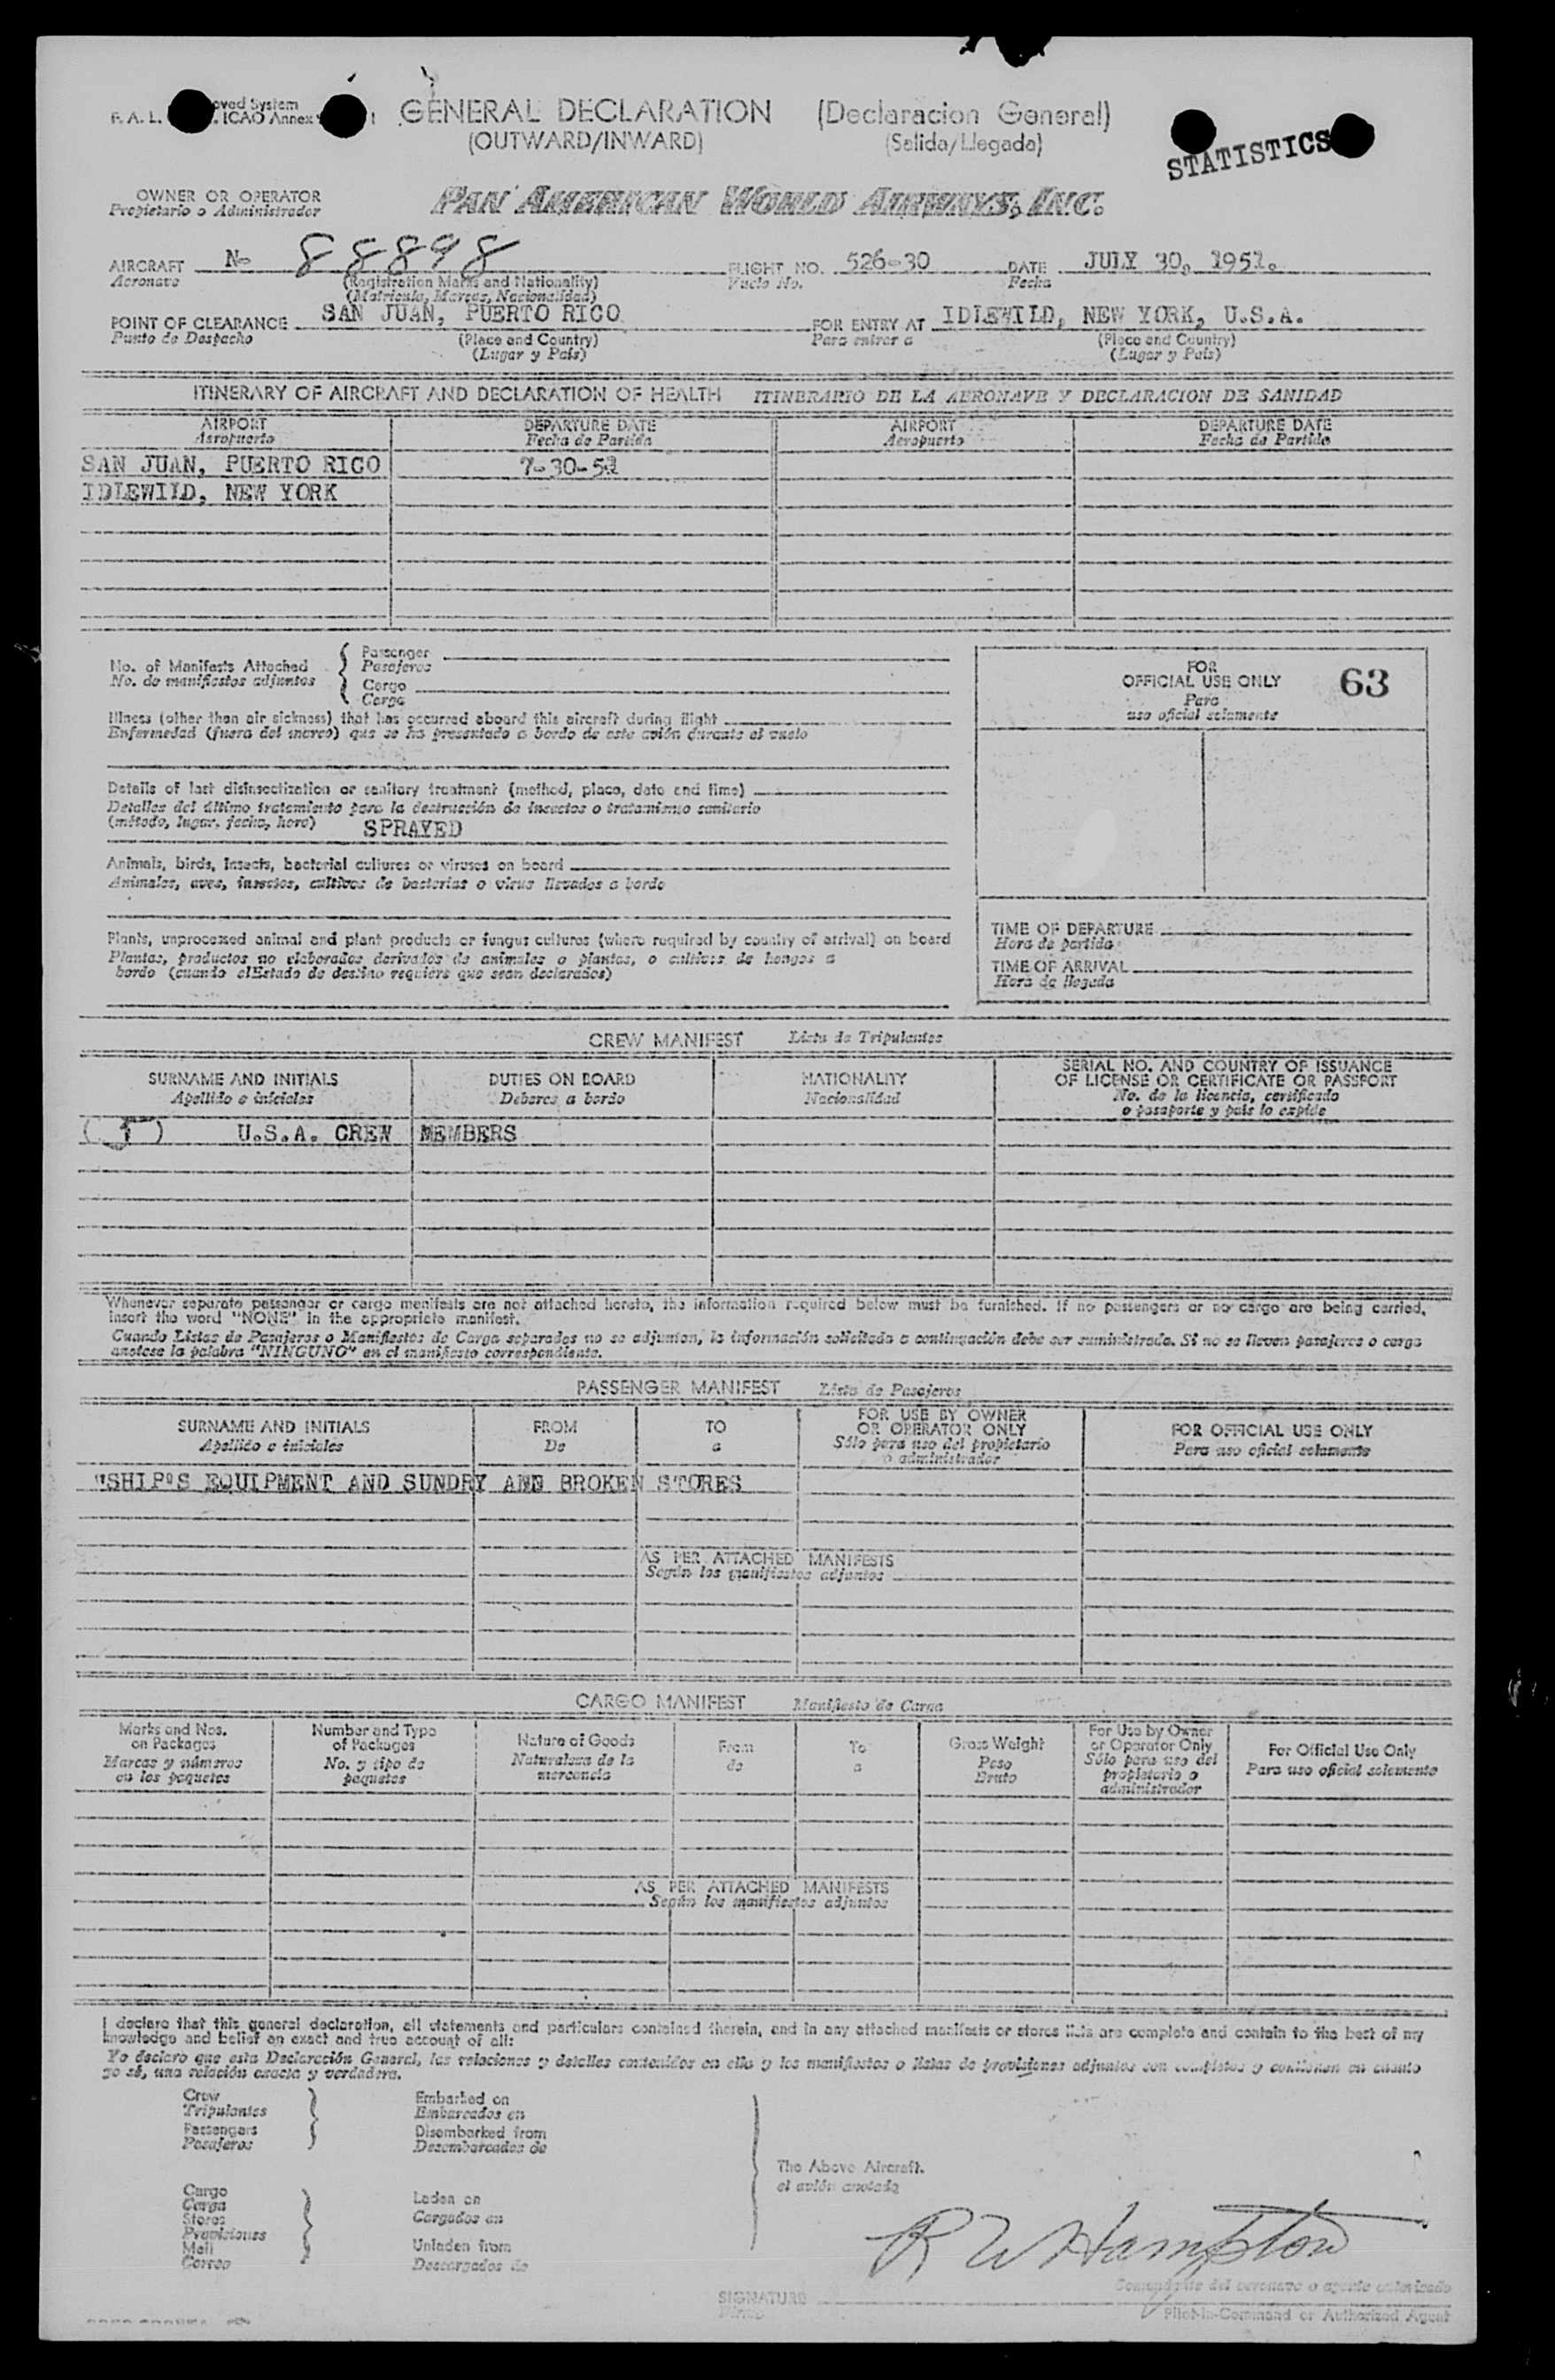 GENERAL DECLARATION (Declaracion General)
(OUTWARD/INWARD) (Salida/Llegada)
STATISTICS
OWNER OR OPERATOR
Propietario o Administrador
PAN AMERICAN WORLD AIRWAYS, INC.
AIRCRAFT N- 88898 FLIGHT NO. 526-30 DATE JULY 30, 1951.
Aeronave (Registration Marks and Nationality) Vuelo No. Fecha
(Matricula, Marcas, Nacionalidad)
POINT OF CLEARANCE SAN JUAN, PUERTO RICO FOR ENTRY AT IDLEWILD, NEW YORK, U.S.A.
Punto de Despacho (Place and Country) Para entrar a (Place and Country)
(Lugar y País) (Lugar y País)
ITINERARY OF AIRCRAFT AND DECLARATION OF HEALTH ITINERARIO DE LA AERONAVE Y DECLARACION DE SANIDAD
AIRPORT DEPARTURE DATE AIRPORT DEPARTURE DATE
Aeropuerto Fecha de Partida Aeropuerto Fecha de Partida
SAN JUAN, PUERTO RICO 7-30-51
IDLEWILD, NEW YORK
No. of Manifests Attached
No. de manifiestos adjuntos
Passenger
Pasajeros
Cargo
Carga
FOR
OFFICIAL USE ONLY
Para
uso oficial solamente
63
Illness (other than air sickness) that has occurred aboard this aircraft during flight
Enfermedad (fuera del mareo) que se ha presentado a bordo de este avión durante el vuelo
Details of last disinsectization or sanitary treatment (method, place, date and time)
Detalles del último tratamiento para la destrucción de insectos o tratamiento sanitario
(método, lugar, fecha, hora) SPRAYED
Animals, birds, insects, bacterial cultures or viruses on board
Animales, aves, insectos, cultivos de bacterias o virus llevados a bordo
Plants, unprocessed animal and plant products or fungus cultures (where required by country of arrival) on board
Plantas, productos no elaborados derivados de animales o plantas, o cultivos de hongos a
bordo (cuando elEstado de destino requiere que sean declarados)
TIME OF DEPARTURE
Hora de partida
TIME OF ARRIVAL
Hora de llegada
CREW MANIFEST Lista de Tripulantes
SURNAME AND INITIALS DUTIES ON BOARD NATIONALITY SERIAL NO. AND COUNTRY OF ISSUANCE
OF LICENSE OR CERTIFICATE OR PASSPORT
Apellido e iniciales Deberes a bordo Nacionalidad No. de la licencia, certificado
o pasaporte y país lo expide
( 5 ) U.S.A. CREW MEMBERS
Whenever separate passenger or cargo manifests are not attached hereto, the information required below must be furnished. If no passengers or no cargo are being carried,
insert the word "NONE" in the appropriate manifest.
Cuando Listas de Pasajeros o Manifiestos de Carga separados no se adjunten, la información solicitada a continuación debe ser suministrada. Si no se lleven pasajeros o carga
anotese la palabra "NINGUNO" en el manifiesto correspondiente.
PASSENGER MANIFEST Lista de Pasajeros
SURNAME AND INITIALS FROM TO FOR USE BY OWNER
OR OPERATOR ONLY FOR OFFICIAL USE ONLY
Apellido e iniciales De a Sólo para uso del propietario
o administrador Para uso oficial solamente
"SHIP'S EQUIPMENT AND SUNDRY AND BROKEN STORES
AS PER ATTACHED MANIFESTS
Según los manifiestos adjuntos
CARGO MANIFEST Manifiesto de Carga
Marks and Nos.
on Packages
Marcas y números
en los paquetes
Number and Type
of Packages
No. y tipo de
paquetes
Nature of Goods
Naturaleza de la
mercancía
From
de
To
a
Gross Weight
Peso
Bruto
For Use by Owner
or Operator Only
Sólo para uso del
propietario o
administrador
For Official Use Only
Para uso oficial solamente
AS PER ATTACHED MANIFESTS
Según los manifiestos adjuntos
I declare that this general declaration, all statements and particulars contained therein, and in any attached manifests or stores lists are complete and contain to the best of my
knowledge and belief an exact and true account of all:
Yo declaro que esta Declaración General, las relaciones y detalles contenidos en ella y los manifiestos o listas de provisiones adjuntos son completos y contienen en cuanto
yo sé, una relación exacta y verdadera.
Crew
Tripulantes
Passengers
Pasajeros
Embarked on
Embarcados en
Disembarked from
Desembarcados de
The Above Aircraft.
el avión anotado
Cargo
Carga
Stores
Provisiones
Mail
Correo
Laden on
Cargados en
Unladen from
Descargados de
R W Hampton
SIGNATURE
Firma
Comandante del aeronave o agente autorizado
Pilot-in-Command or Authorized Agent